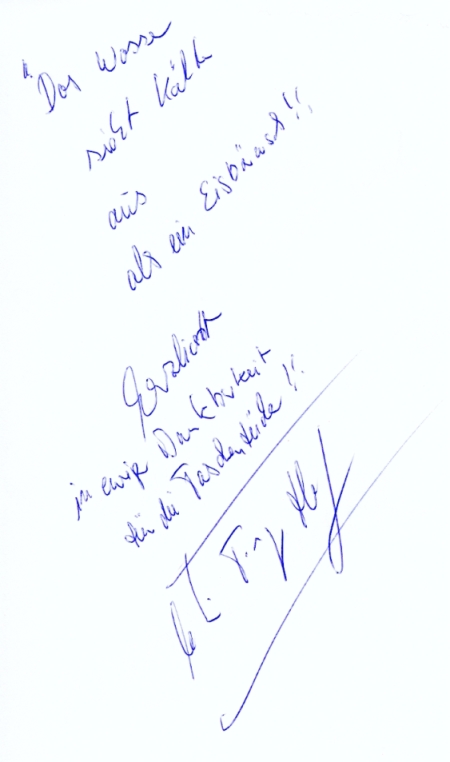 "Das Wasser
sieht kälter
aus
als ein Eisbärarsch!!
Herzlichst
in ewiger Dankbarkeit
für die Taschentücher!!